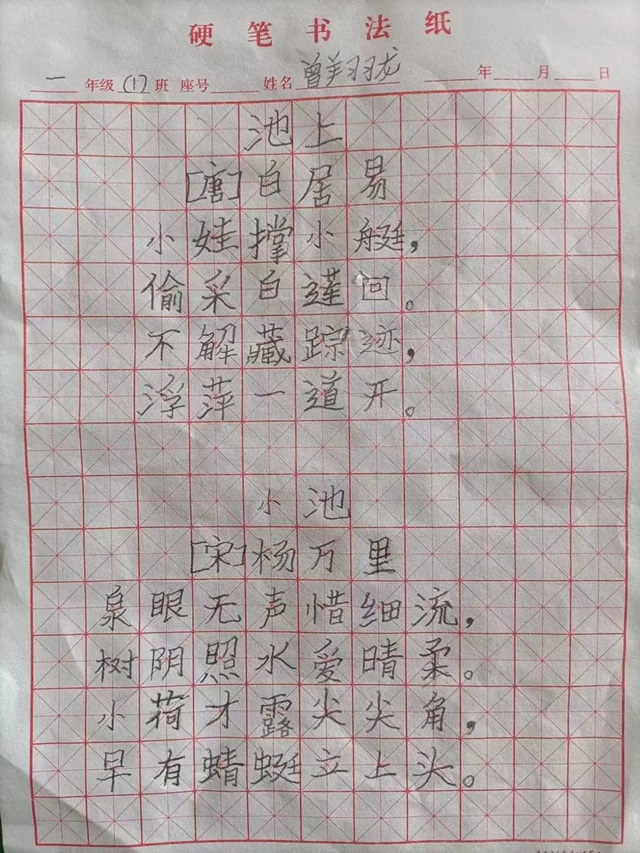 硬笔书法纸
一年级(1)班 座号 姓名曾羽珑 年 月 日
池上
[唐]白居易
小娃撑小艇，
偷采白莲回。
不解藏踪迹，
浮萍一道开。
小池
[宋]杨万里
泉眼无声惜细流，
树阴照水爱晴柔。
小荷才露尖尖角，
早有蜻蜓立上头。